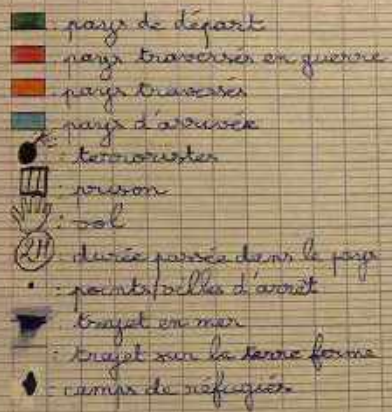 : pays de départ
: pays traversés en guerre
: pays traversés
: pays d'arrivée
: terroristes
: prison
: vol
2H : durée passée dans le pays
: points/villes d'arrêt
: trajet en mer
: trajet sur la terre ferme
: camps de réfugiés